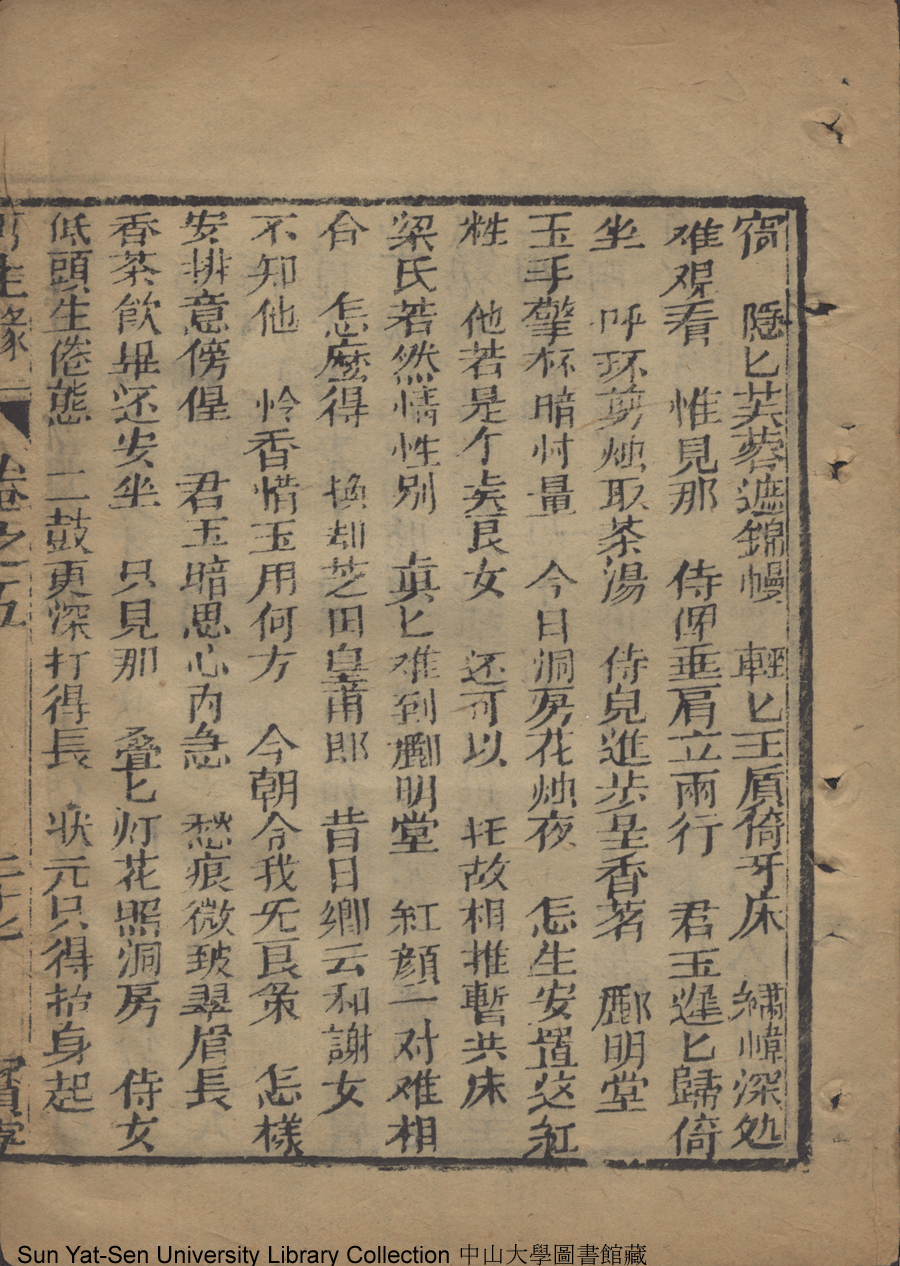 窗　隱匕芙蓉遮錦幔　輕匕王原倚牙床　繡幃深処
难观看　惟見那　侍俾垂肩立兩行　君玉遲匕歸倚
坐　呼环剪烛取茶湯　侍兒進步呈香茗　酈明堂
玉手擎杯暗忖量　今日洞房花烛夜　怎生安置这紅
粧　他若是个真良女　还可以　托故相推暫共床
梁氏若然情性別　真匕难到酈明堂　紅顔二对难相
合　怎麽得　换却芝田皇甫郎　昔日鄉云和謝女
不知他　怜香惜玉用何方　今朝令我旡良策　怎樣
安排意傍偟　君玉暗思心內急　愁痕微皱翠眉長
香茶飲畢还安坐　只見那　叠匕灯花照洞房　侍女
低頭生倦態　二鼓更深打得長　状元只得抬身起
再生緣　卷之五　二十七　寳
Sun Yat-Sen University Library Collection 中山大學圖書館藏